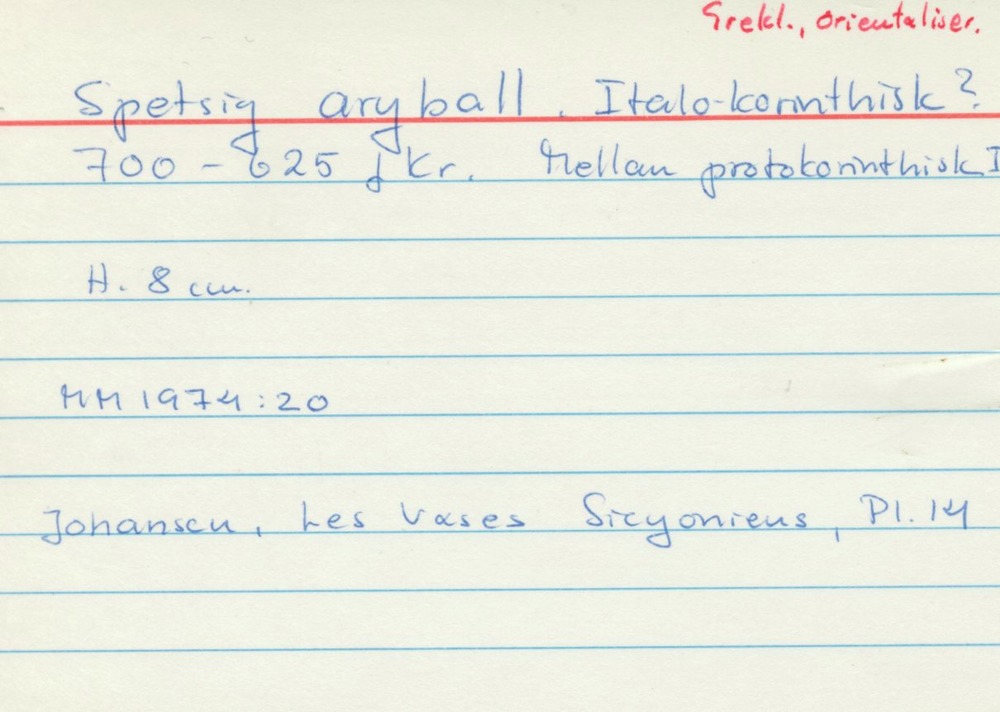 Grekl., orientaliser.
Spetsig aryball. Italo-korinthisk?
700 - 625 f Kr. Mellan protokorinthisk I
H. 8 cm.
MM 1974:20
Johansen, Les Vases Sicyoniens, Pl. 14